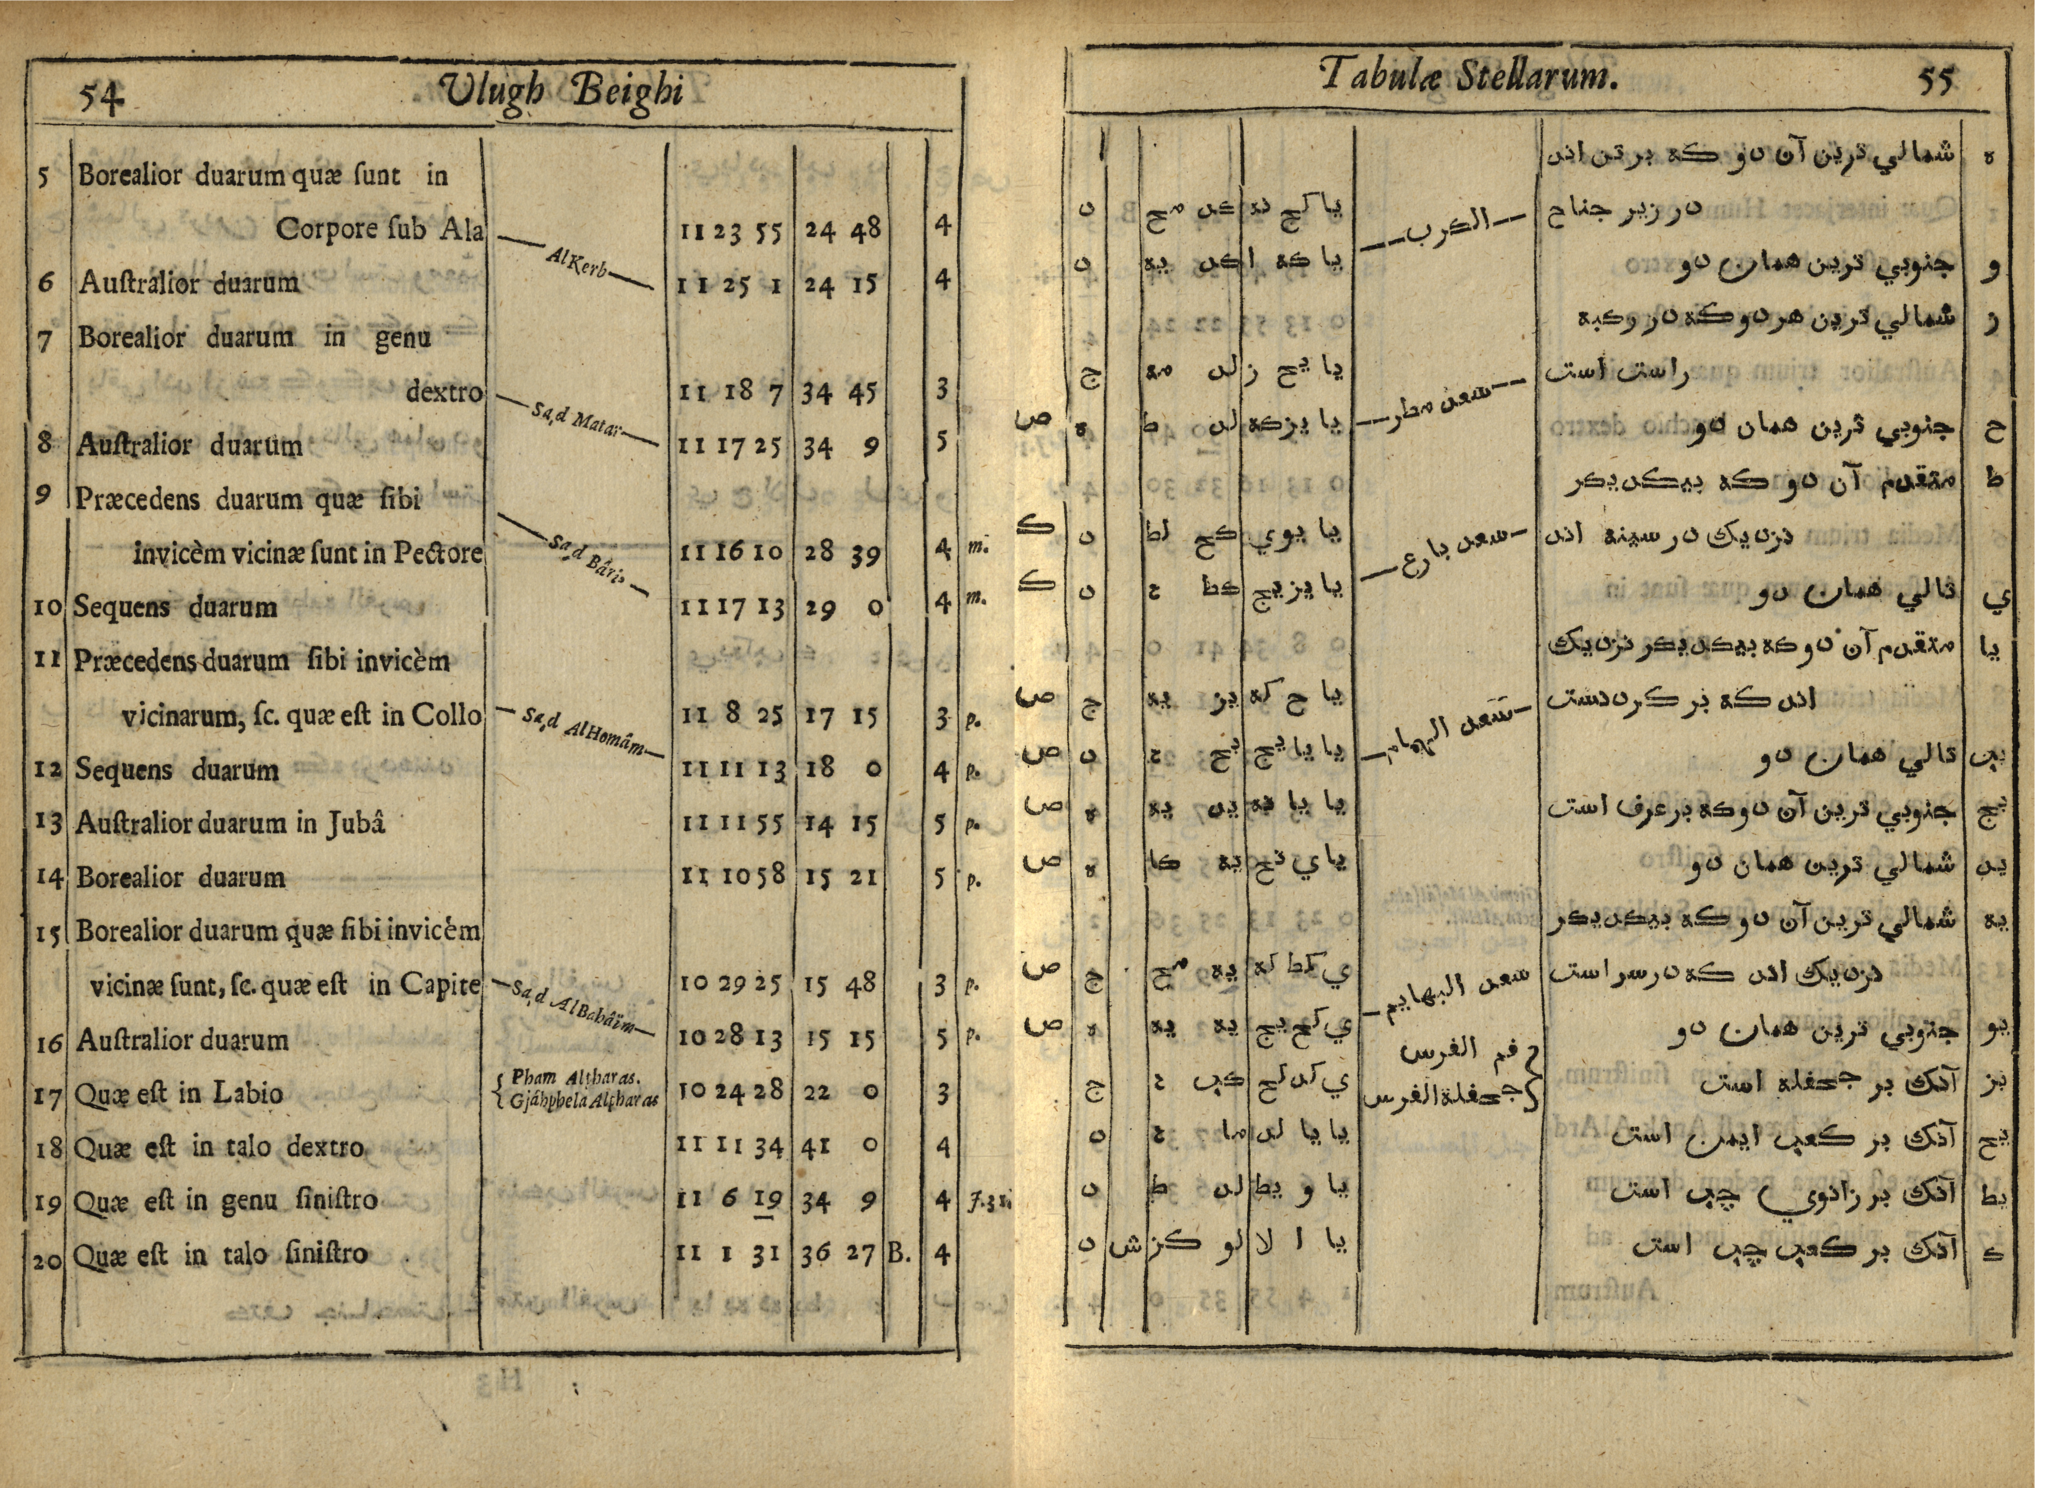 54 Ulugh Beighi
5 Borealior duarum quæ ſunt in
Corpore ſub Ala AlKerb 11 23 55 24 48 4
6 Auſtralior duarum 11 25 1 24 15 4
7 Borealior duarum in genu
dextro Sa,d Matar 11 18 7 34 45 3
8 Auſtralior duarum 11 17 25 34 9 5
9 Præcedens duarum quæ ſibi
invicèm vicinæ ſunt in Pectore Sa,d Bâri, 11 16 10 28 39 4 m.
10 Sequens duarum 11 17 13 29 0 4 m.
11 Præcedens duarum ſibi invicèm
vicinarum, ſc. quæ eſt in Collo Sa,d AlHomâm 11 8 25 17 15 3 p.
12 Sequens duarum 11 11 13 18 0 4 p.
13 Auſtralior duarum in Jubâ 11 11 55 14 15 5 p.
14 Borealior duarum 11 10 58 15 21 5 p.
15 Borealior duarum quæ ſibi invicèm
vicinæ ſunt, ſc. quæ eſt in Capite Sa,d AlBahâïm 10 29 25 15 48 3 p.
16 Auſtralior duarum 10 28 13 15 15 5 p.
17 Quæ eſt in Labio Pham Alpharas. Gjáhphela Alpharas 10 24 28 22 0 3
18 Quæ eſt in talo dextro 11 11 34 41 0 4
19 Quæ eſt in genu ſiniſtro 11 6 19 34 9 4
20 Quæ eſt in talo ſiniſtro 11 1 31 36 27 B. 4
Tabulæ Stellarum. 55
ه شمالي ترين آن دو كه بر تن اند
در زير جناح الكرب يا كج نه كد مح د
و جنوبي ترين همان دو يا كه ا كد يه د
ز شمالي ترين هر دو كه در ركبه
راست است سعد مطر يا يح ز لد مه ج
ح جنوبي ترين همان دو يا يز كه لد ط ه ص
ط متقدم آن دو كه بيكديكر
نزديك در سينه اند سعد بارع يا يو ي كح لط د ك
ي تالي همان دو يا يز يج كط د ك
يا متقدم آن دو كه بيكديكر نزديك
اند كه بر كردنست سعد الهمام يا ح كه يز يه ج ص
يب تالي همان دو يا يا يج يح د ص
يج جنوبي ترين آن دو كه بر عرف است يا يا نه يد يه ه ص
يد شمالي ترين همان دو يا ي نح يه كا ه ص
يه شمالي ترين آن دو كه بيكديكر
نزديك اند كه در سر است سعد البهايم ي كط كه يه مح ج ص
يو جنوبي ترين همان دو ي كح يج يه يه ه ص
يز آنك بر جحفله است فم الفرس جحفلة الفرس ي كد كح كب ج
يح آنك بر كعب ايمن است يا يا لد ما د
يط آنك بر زانوي چپ است يا و يط لد ط د
ك آنك بر كعب چپ است يا ا لا لو كز ش د